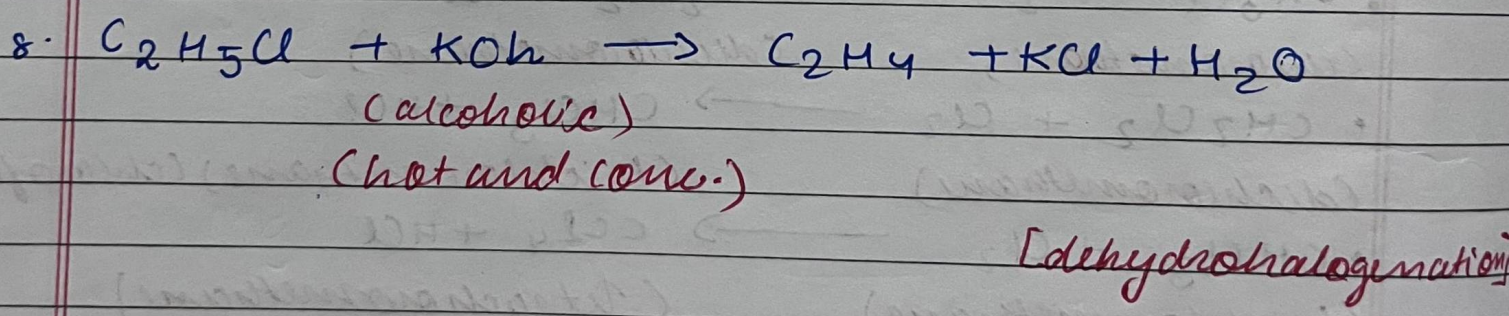 8. C₂H₅Cl + KOh → C₂H₄ + KCl + H₂O
(alcoholic)
(hot and conc.)
[dehydrohalogenation]